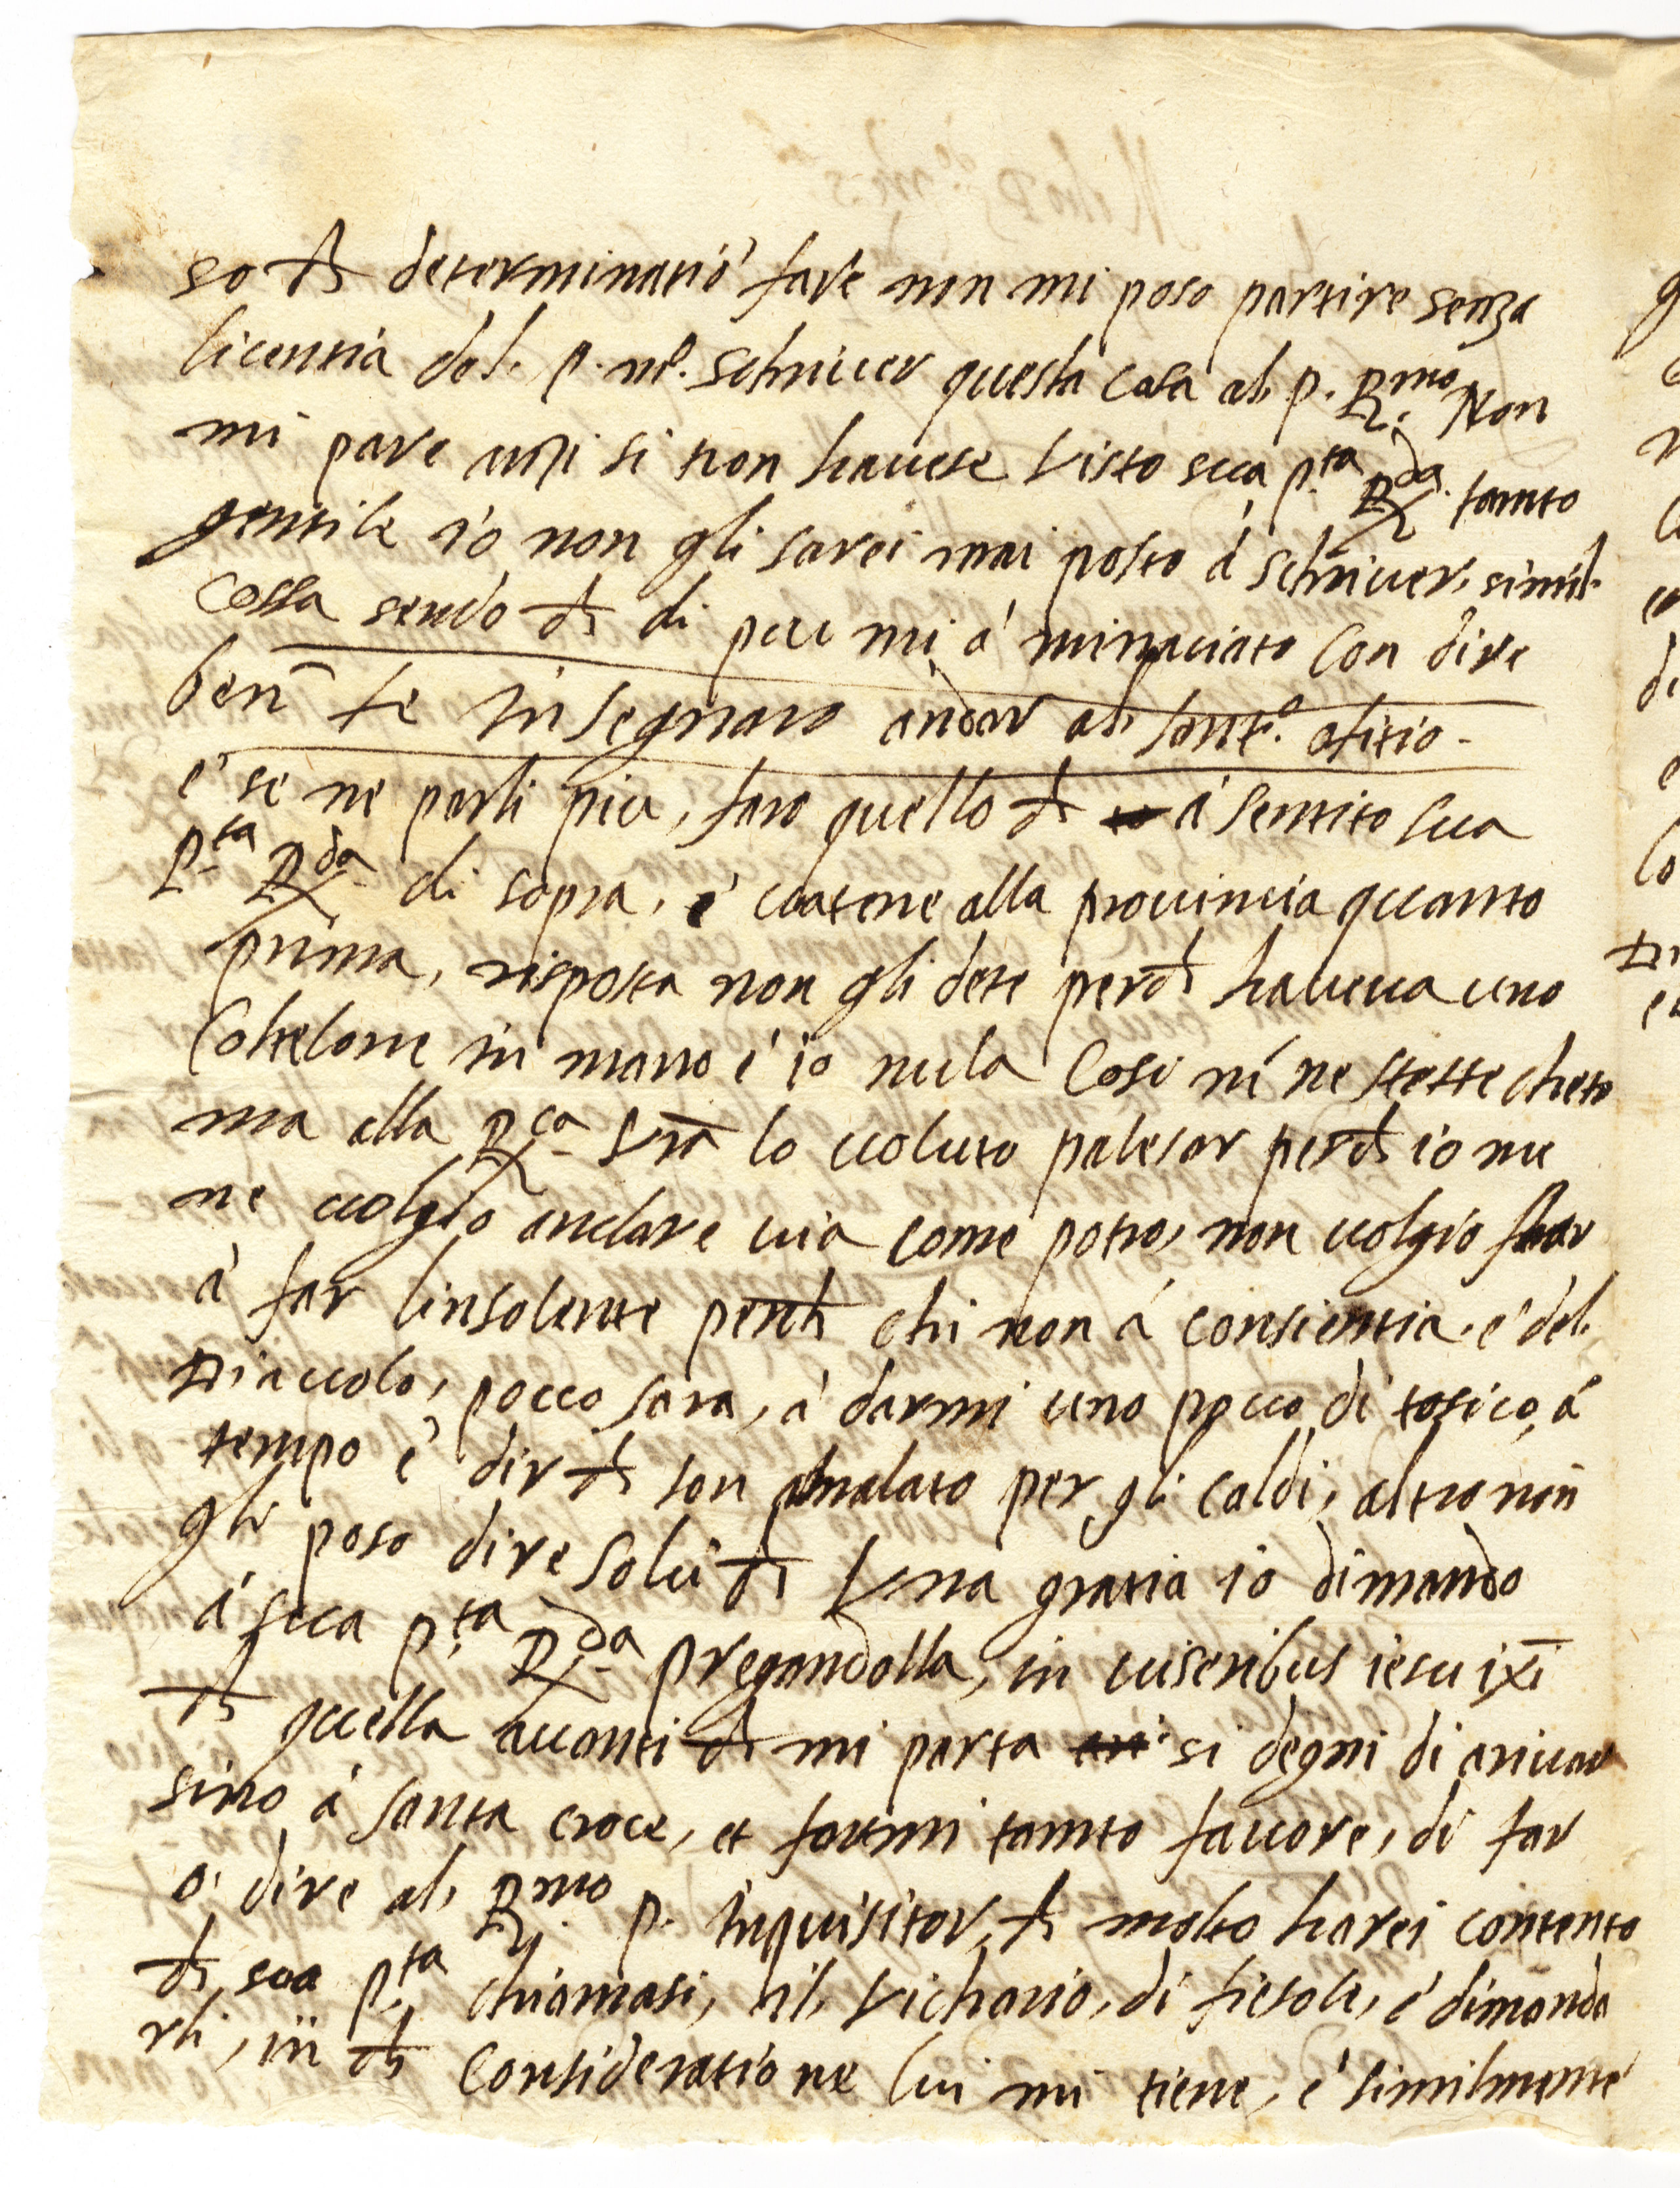 so ch determinatiō fare non mi poso partire senza
licentia del. p. nr̄o. schriver questa cosa al p. R.mo Non
mi pare anzi si non havese visto sua p.ta R.da tanto
gentile io non gli sarei mai posto á schriver simil.
Cossa sendo ch di piu mi á minaciato con dire
ben te insegnaro andar al sant.o ofitio -
é se ne parli piu, faro quello ch á sentito sua
P.ta R.da di sopra, é vatene alla provincia quanto
prima, risposta non gli dete perch haveva uno
Coltelone in mano é io nula Cosi mé ne stette cheto
ma alla R.ca Vrā lo voluto palesar perch io me
ne volgio andare via come potro, non volgio star
á far linsolente perch chi non á consientia é del.
Diavolo, pocco sara, á darmi uno pocco di tosico, á
tempo é dir ch son amalato per gli caldi, altro non
gli poso dire solū ch Una gratia io dimando
á sua p.ta R.da pregandolla, in viseribus iesu ixī
ch quella avanti ch mi parta si degni di arivar
sino á santa croce, et farmi tanto favore, di far
o' dire al R.mo p. inquisitor, ch molto harei contento
ch sua p.ta chiamasi, il. Vichario, di fiesole, é dimanda
rli, in ch Consideratione lui mi tiene, é similmente